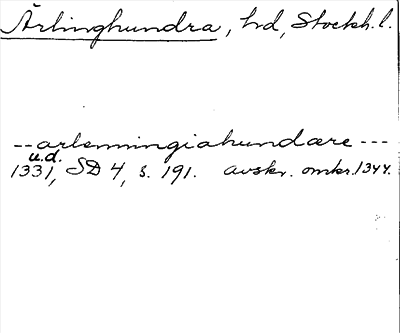 Ärlinghundra, hd, Stockh.l.
--arlenningiahundære---
u.d.
1331, SD 4, s. 191. avskr. omkr. 1344.